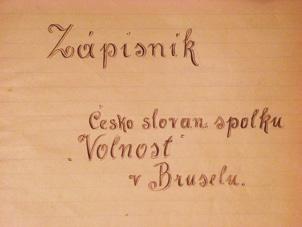 Zápisník
Česko slovan. spolku
„Volnost"
v Bruselu.